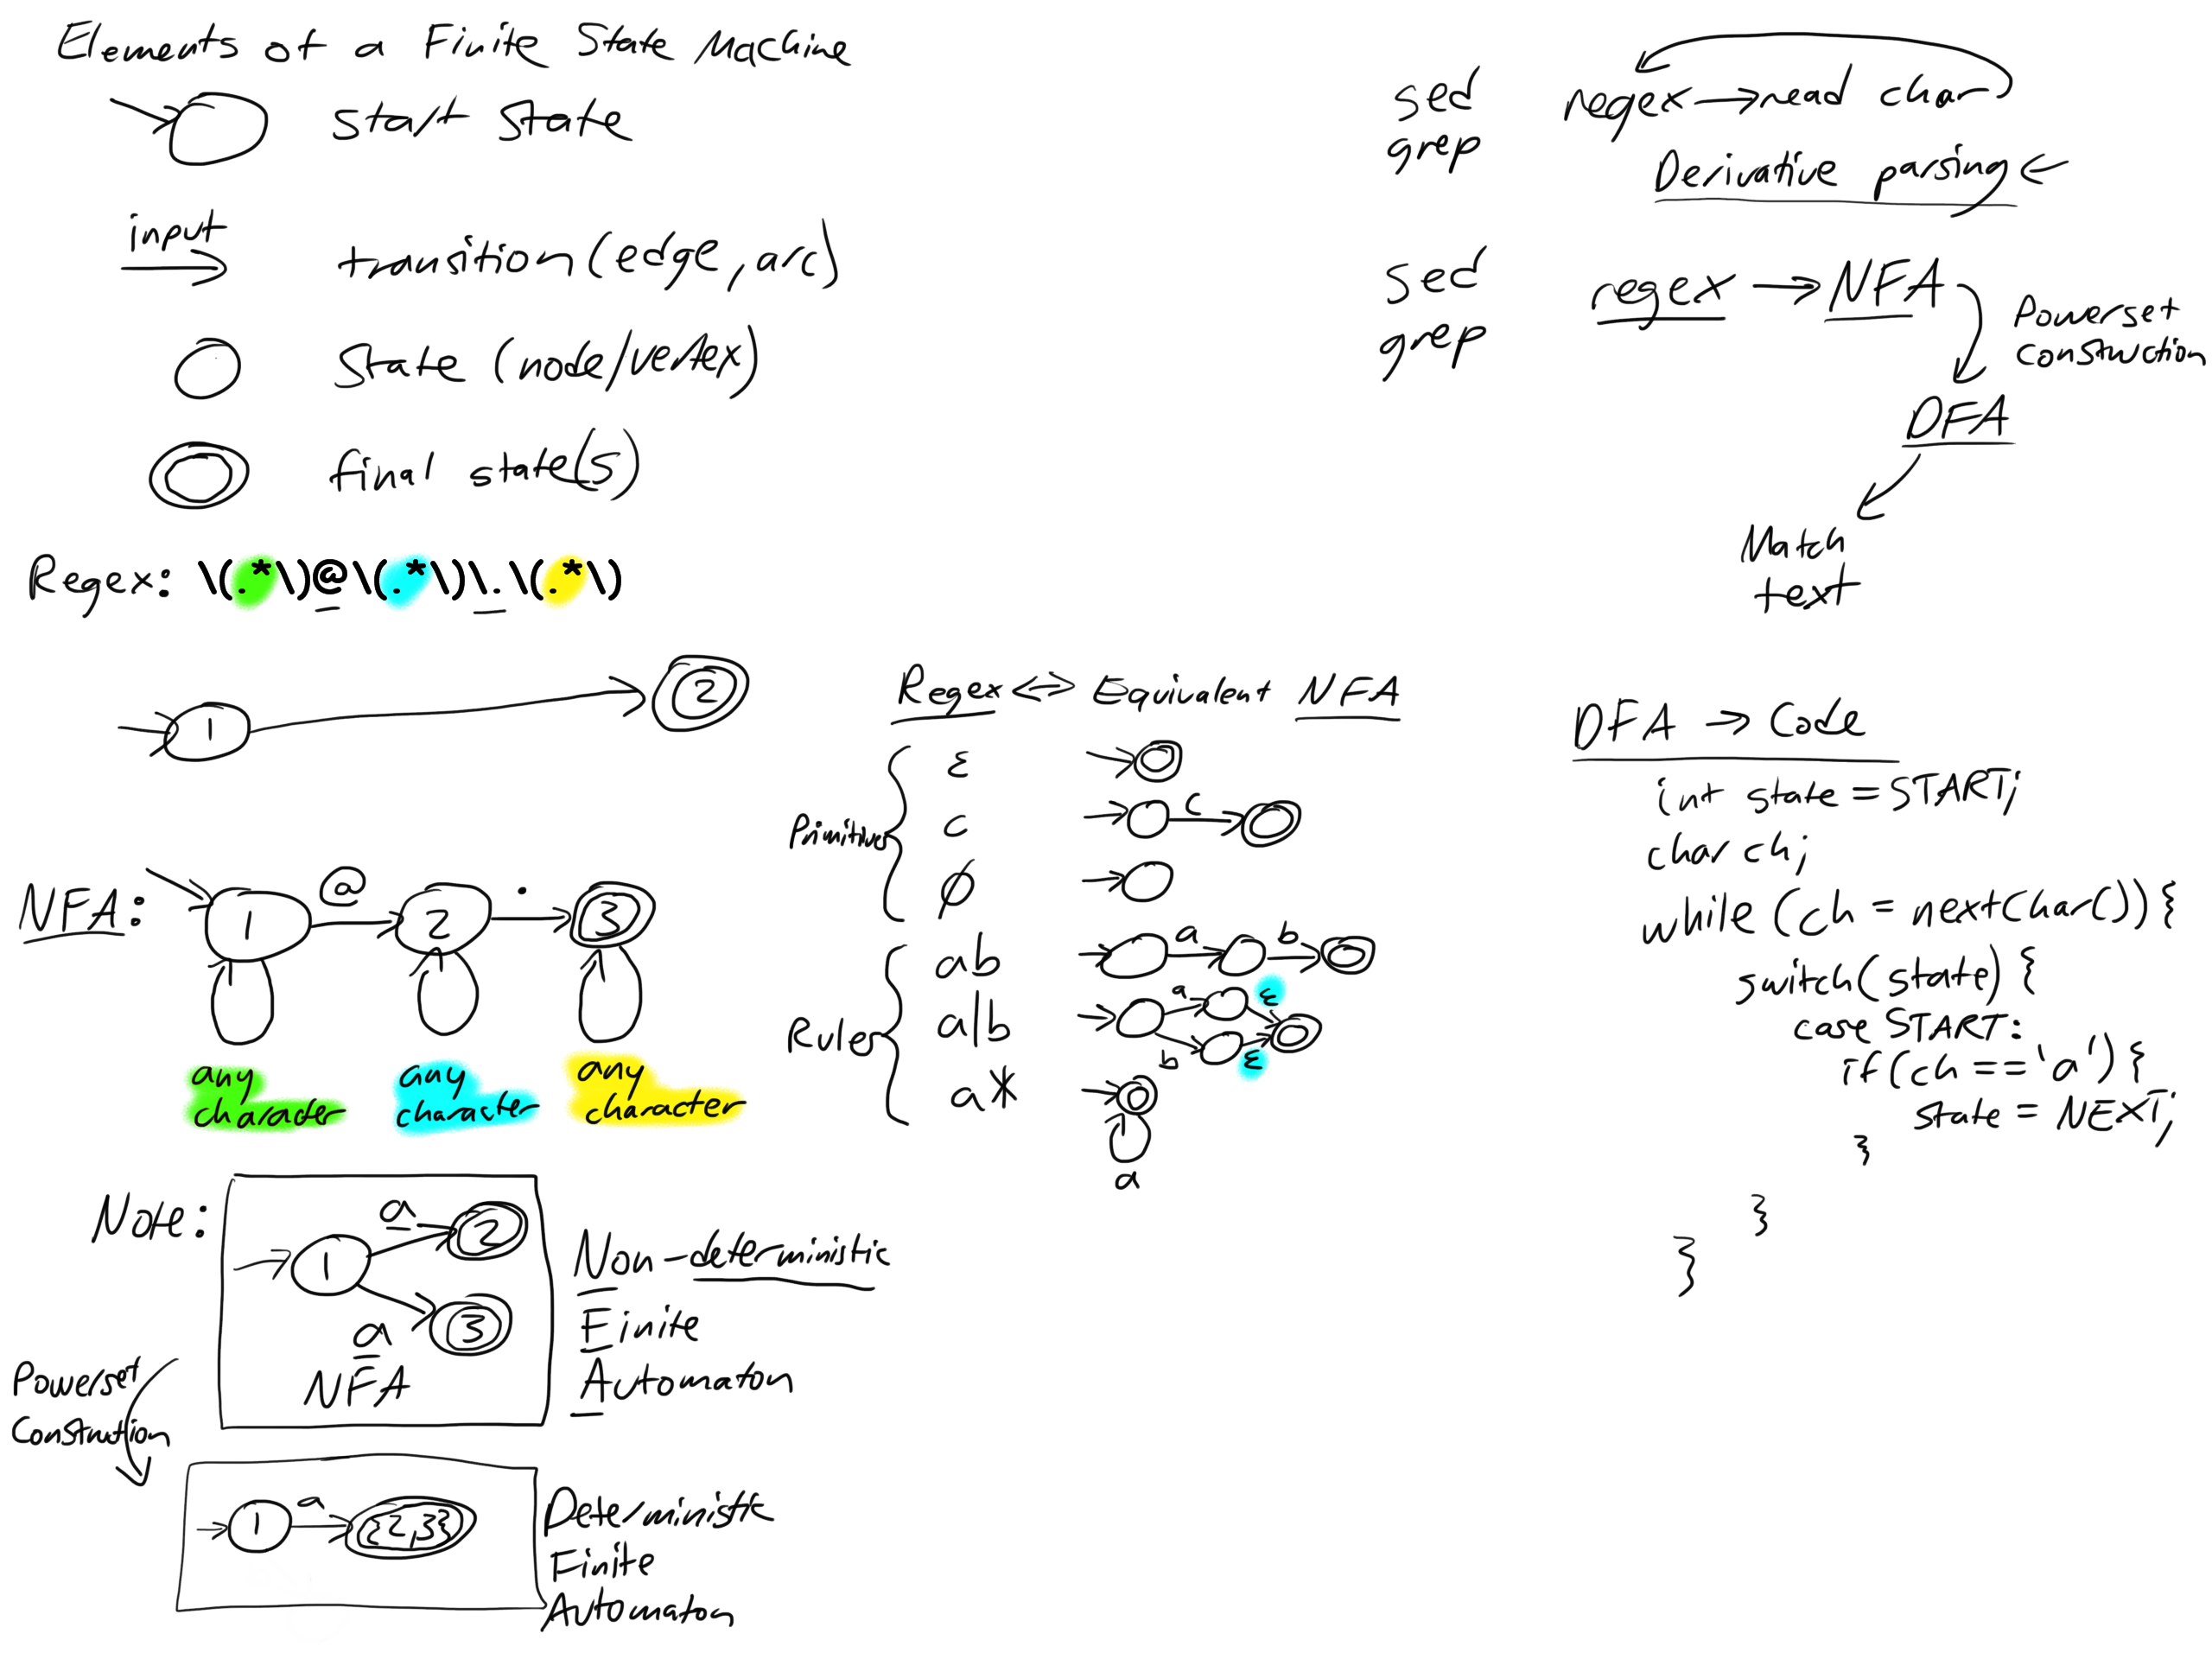 Elements of a Finite State Machine
start state
input
transition (edge, arc)
state (node/vertex)
final state(s)
Regex: \(.*\)@\(.*\)\.\(.*\)
1
2
NFA:
@
.
1
2
3
any
character
any
character
any
character
Note:
a
1
2
3
a
NFA
Non-deterministic
Finite
Automaton
Powerset
Construction
1
a
{2,3}
Deterministic
Finite
Automaton
Regex <=> Equivalent NFA
Primitives
ε
c
c
ø
Rules
ab
a
b
a|b
a
ε
b
ε
a*
a
sed
grep
regex → read char
Derivative parsing ←
sed
grep
regex → NFA
Powerset
Construction
DFA
Match
text
DFA → Code
int state = START;
char ch;
while (ch = nextChar()) {
switch(state) {
case START:
if(ch == 'a') {
state = NEXT;
}
}
}